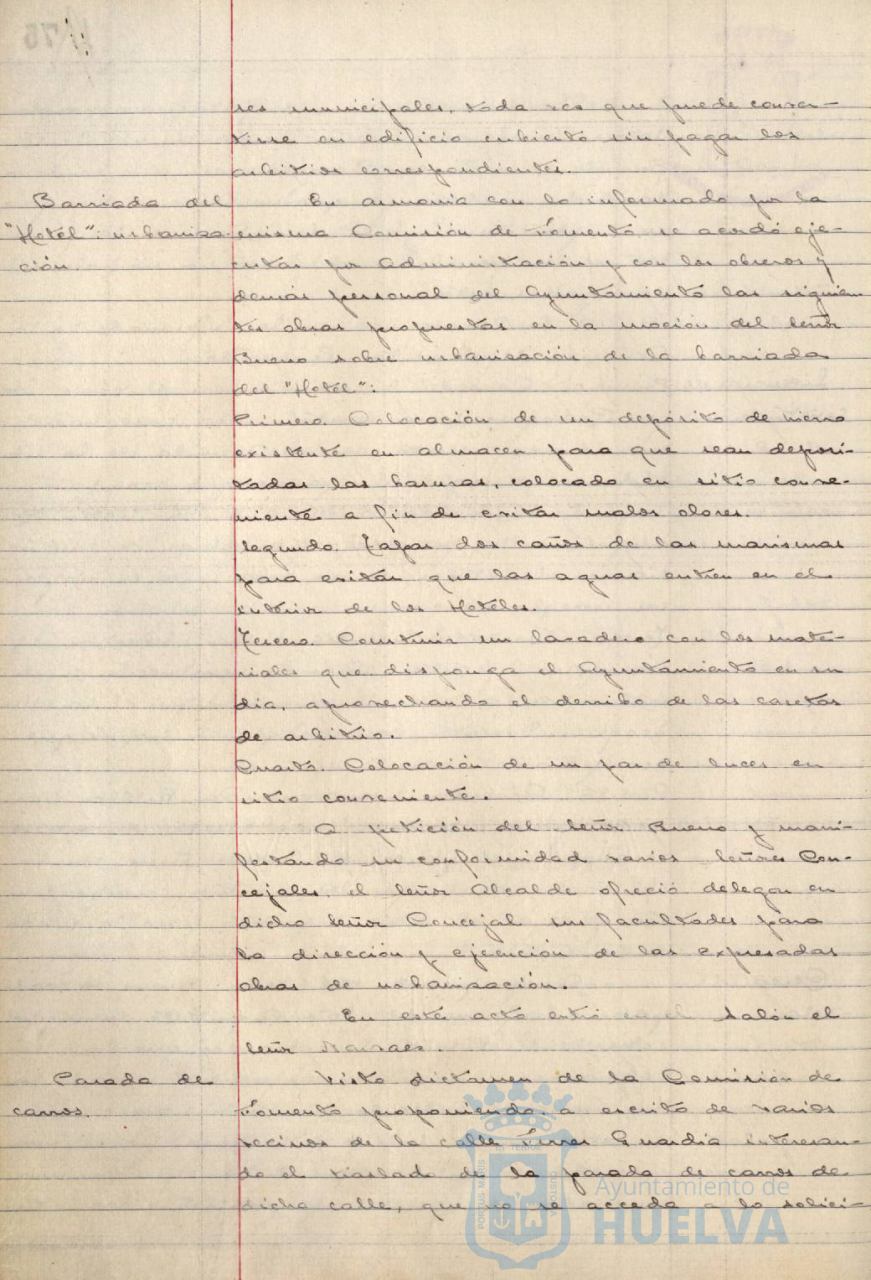 res municipales, toda vez que puede conver-
tirse en edificio cubierto sin pagar los
arbitrios correspondientes.
Barriada del
"Hotel": urbaniza-
ción.
En armonía con lo informado por la
misma Comisión de Fomento se acordó eje-
cutar por Administración y con los obreros y
demás personal del Ayuntamiento las siguien-
tes obras propuestas en la moción del Señor
Bueno sobre urbanización de la barriada
del "Hotel":
Primero. Colocación de un depósito de hierro
existente en almacen para que sean deposi-
tadas las basuras, colocado en sitio conve-
niente a fin de evitar malos olores.
Segundo. Tapar dos caños de las marismas
para evitar que las aguas entren en el
interior de los Hoteles.
Tercero. Construir un lavadero con los mate-
riales que disponga el Ayuntamiento en su
dia, aprovechando el derribo de las casetas
de arbitrio.
Cuarto. Colocación de un par de luces en
sitio conveniente.
A petición del Señor Bueno y mani-
festando su conformidad varios Señores Con-
cejales, el Señor Alcalde ofreció delegar en
dicho Señor Concejal sus facultades para
la dirección y ejecución de las expresadas
obras de urbanización.
En este acto entró en el salón el
Señor
Parada de
carros.
Visto dictamen de la Comisión de
Fomento proponiendo, a escrito de varios
vecinos de la calle Ferrer Guardia interesan-
do el traslado de la parada de carros de
dicha calle, que no se acceda a lo solici-
Ayuntamiento de
HUELVA